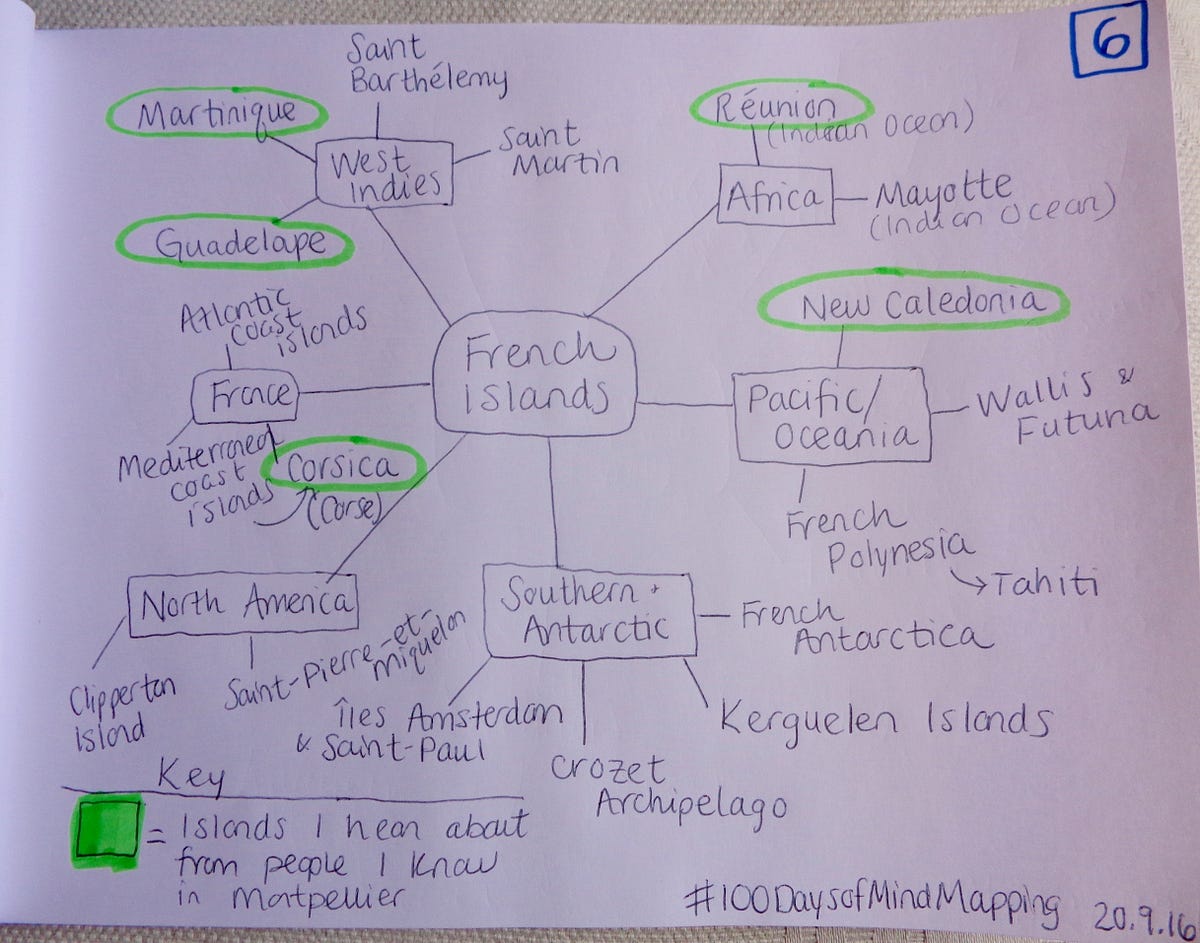 6
Saint
Barthélemy
Martinique
Saint
Martin
West
Indies
Guadelape
Réunion
(Indian Ocean)
Africa
Mayotte
(Indian Ocean)
New Caledonia
Atlantic
coast
islands
France
Mediterraned
coast
islands
Corsica
(Corse)
French
islands
Pacific/
Oceania
Wallis &
Futuna
French
Polynesia
Tahiti
North America
Clipperton
Island
Saint-Pierre-et-
Miquelon
Southern +
Antarctic
French
Antarctica
Îles Amsterdam
& Saint-Paul
Crozet
Archipelago
Kerguelen Islands
Key
= Islands I hear about
from people I know
in Montpellier
#100DaysofMindMapping 20.9.16